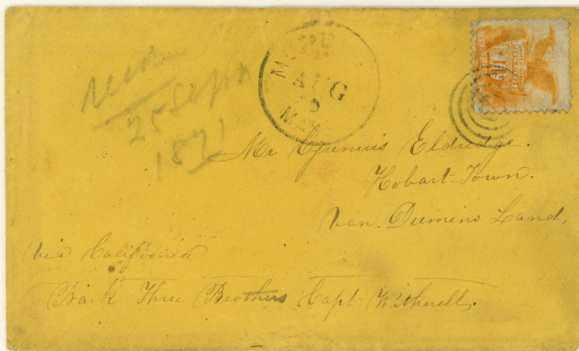 Recd
25 Sept
1871
AUG
MASS
Mr
Eldredge.
Hobart-Town.
Van. Diemens Land.
via California
Bark Three Brothers Capt Witherell.